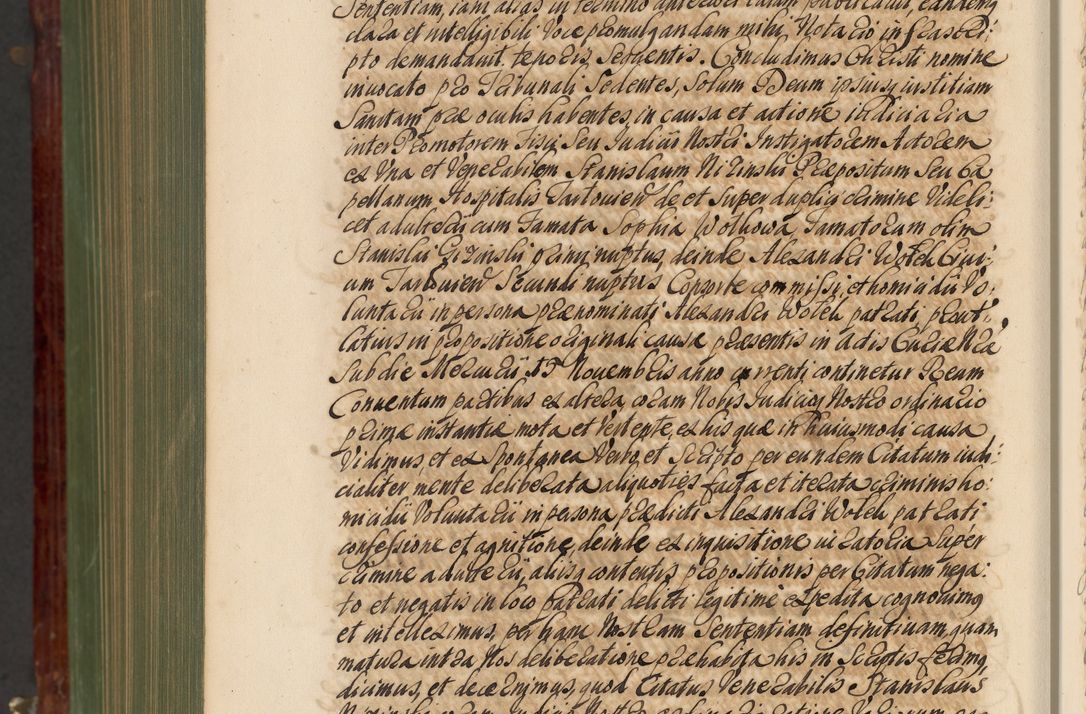 Sententiam, iam alias in termino
clara et intelligibili Voce promulgandam mihi Notario infrascri:
pto demandauit tenoris Sequentis. Concludimus Christi nomine
inuocato pro Tribunali Sedentes, Solum Deum ipsiusq iustitiam
Sanctam præ oculis habentes, in causa et actione iudiciaria
inter Promotorem Fisci Seu Judicii Nostri Instigatorem Actorem
ex Vna et Venerabilem Stanislaum Nizinski Præpositum Seu Ca
pellanum Hospitalis Tarlouien de et Super duplici crimine Videli:
cet adulterii cum Famata Sophia Wolkowa Famatorum olim
Stanislai primi nuptus, deinde Alexandri Wolek Ciui:
um Tarlouien Secundi nuptus Consorte commissi, et homicidii Vo:
luntarii in persona prænominati Alexandri Wolek patrati, prout
latius in propositione originali causæ præsentis in Actis Curiæ Nræ
Sub die Mercurii 15 Nouembris anno currenti continetur Reum
Conuentum partibus ex altera, coram Nobis Judicioq Nostro ordinario
primæ instantiæ mota et Vertente, ex his quæ in huiusmodi causa
Vidimus, et ex Spontanea Verbo et Scripto per eundem Citatum iudi:
cialiter mente deliberata aliquoties facta et iterata criminis ho:
micidii Voluntarii in persona prædicti Alexandri Wolek patrati
confessione et agnitione, deinde ex inquisitione iuratoria Super
crimine adulterii, aliisq contentis propositionis per Citatum nega:
to et negatis in loco patrati delicti legitime expedita cognouimq
et intelleximus, per hanc Nostram Sententiam definitiuam, quam
matura intra Nos deliberatione præhabita his in Scriptis ferimq,
dicimus, et decernimus, quod Citatus Venerabilis Stanislaus